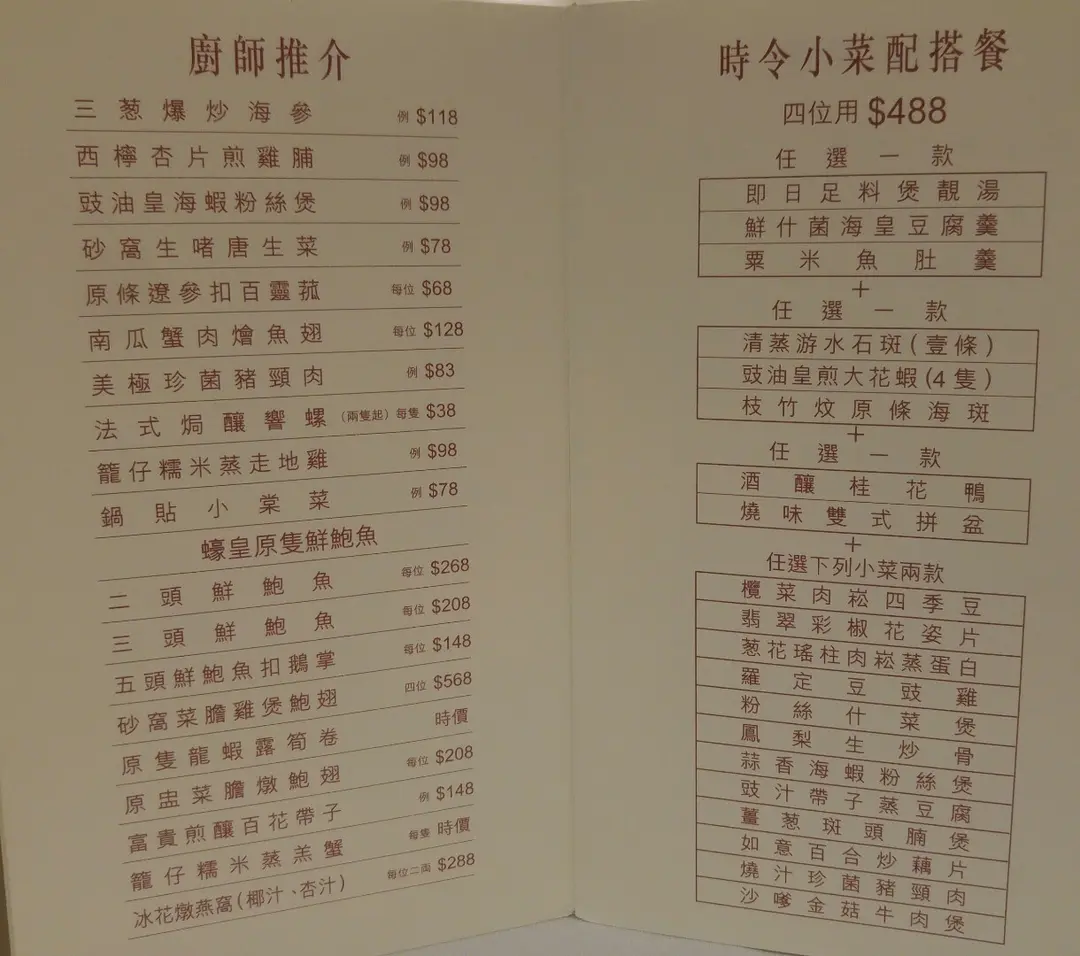 廚師推介
三葱爆炒海參 例 $118
西檸杏片煎雞脯 例 $98
豉油皇海蝦粉絲煲 例 $98
砂窩生啫唐生菜 例 $78
原條遼參扣百靈菰 每位 $68
南瓜蟹肉燴魚翅 每位 $128
美極珍菌豬頸肉 例 $83
法式焗釀響螺 (兩隻起) 每隻 $38
籠仔糯米蒸走地雞 例 $98
鍋貼小棠菜 例 $78
蠔皇原隻鮮鮑魚
二頭鮮鮑魚 每位 $268
三頭鮮鮑魚 每位 $208
五頭鮮鮑魚扣鵝掌 每位 $148
砂窩菜膽雞煲鮑翅 四位 $568
原隻龍蝦露筍卷 時價
原盅菜膽燉鮑翅 每位 $208
富貴煎釀百花帶子 例 $148
籠仔糯米蒸羔蟹 每隻 時價
冰花燉燕窩(椰汁、杏汁) 每位二両 $288
時令小菜配搭餐
四位用 $488
任選一款
即日足料煲靚湯
鮮什菌海皇豆腐羹
粟米魚肚羹
+
任選一款
清蒸游水石斑(壹條)
豉油皇煎大花蝦(4隻)
枝竹炆原條海斑
+
任選一款
酒釀桂花鴨
燒味雙式拼盆
+
任選下列小菜兩款
欖菜肉崧四季豆
翡翠彩椒花姿片
葱花瑤柱肉崧蒸蛋白
羅定豆豉雞
粉絲什菜煲
鳳梨生炒骨
蒜香海蝦粉絲煲
豉汁帶子蒸豆腐
薑葱斑頭腩煲
如意百合炒藕片
燒汁珍菌豬頸肉
沙嗲金菇牛肉煲